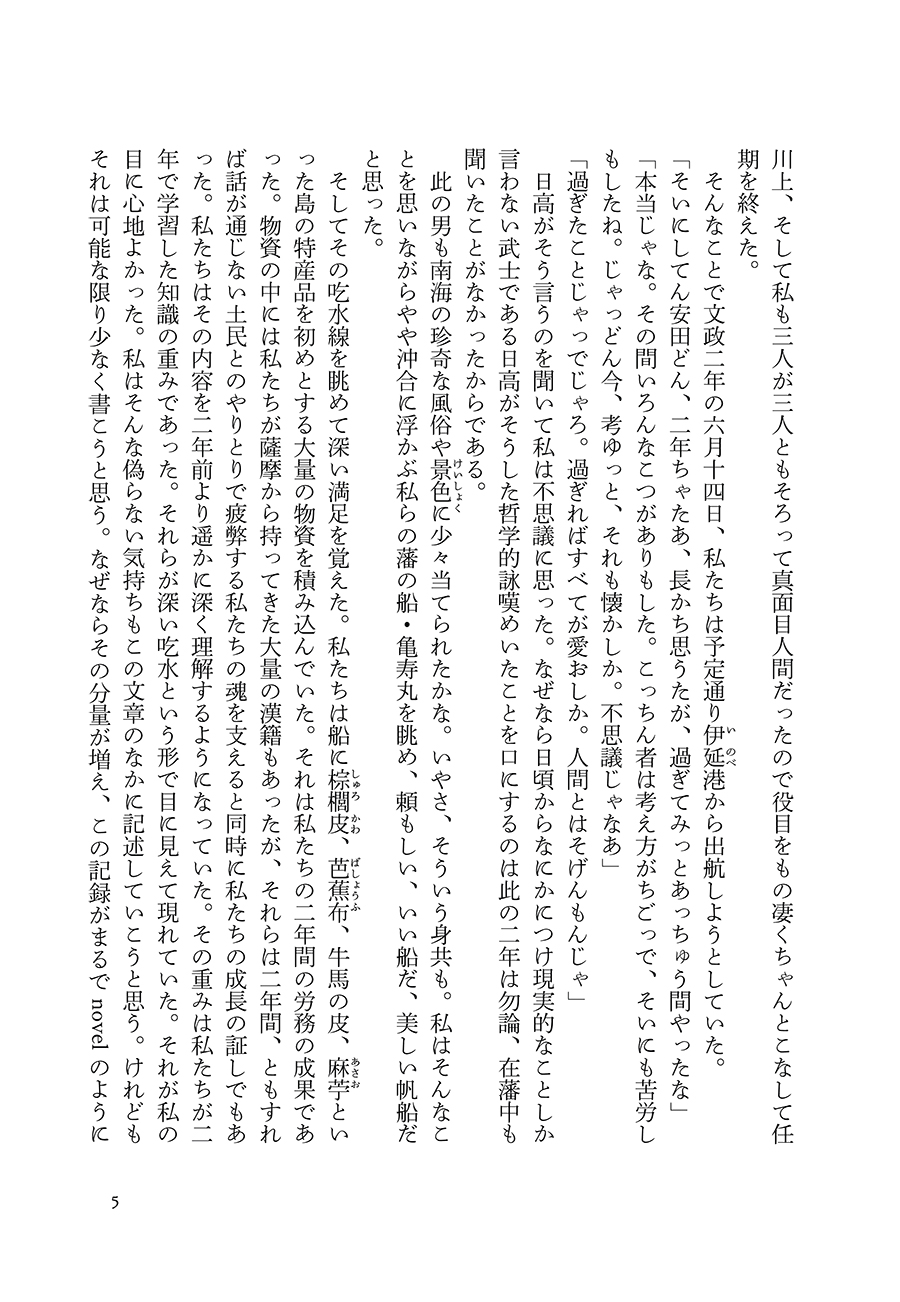 川上、そして私も三人が三人ともそろって真面目人間だったので役目をもの凄くちゃんとこなして任
期を終えた。
そんなことで文政二年の六月十四日、私たちは予定通り伊延港から出航しようとしていた。
「そいにしてん安田どん、二年ちゃたあ、長かち思うたが、過ぎてみっとあっちゅう間やったな」
「本当じゃな。その間いろんなこつがありもした。こっちん者は考え方がちごっで、そいにも苦労し
もしたね。じゃっどん今、考ゆっと、それも懐かしか。不思議じゃなあ」
「過ぎたことじゃっでじゃろ。過ぎればすべてが愛おしか。人間とはそげんもんじゃ」
日高がそう言うのを聞いて私は不思議に思った。なぜなら日頃からなにかにつけ現実的なことしか
言わない武士である日高がそうした哲学的詠嘆めいたことを口にするのは此の二年は勿論、在藩中も
聞いたことがなかったからである。
此の男も南海の珍奇な風俗や景色に少々当てられたかな。いやさ、そういう身共も。私はそんなこ
とを思いながらやや沖合に浮かぶ私らの藩の船・亀寿丸を眺め、頼もしい、いい船だ、美しい帆船だ
と思った。
そしてその吃水線を眺めて深い満足を覚えた。私たちは船に棕櫚皮、芭蕉布、牛馬の皮、麻苧とい
った島の特産品を初めとする大量の物資を積み込んでいた。それは私たちの二年間の労務の成果であ
った。物資の中には私たちが薩摩から持ってきた大量の漢籍もあったが、それらは二年間、ともすれ
ば話が通じない土民とのやりとりで疲弊する私たちの魂を支えると同時に私たちの成長の証しでもあ
った。私たちはその内容を二年前より遥かに深く理解するようになっていた。その重みは私たちが二
年で学習した知識の重みであった。それらが深い吃水という形で目に見えて現れていた。それが私の
目に心地よかった。私はそんな偽らない気持ちもこの文章のなかに記述していこうと思う。けれども
それは可能な限り少なく書こうと思う。なぜならその分量が増え、この記録がまるで novel のように
5